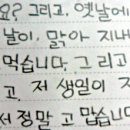 요? 그리고, 옛날에
날이, 맑아 지내
먹습니다. 그리고
고. 저 생일이 지
서 정말 고 맙습니